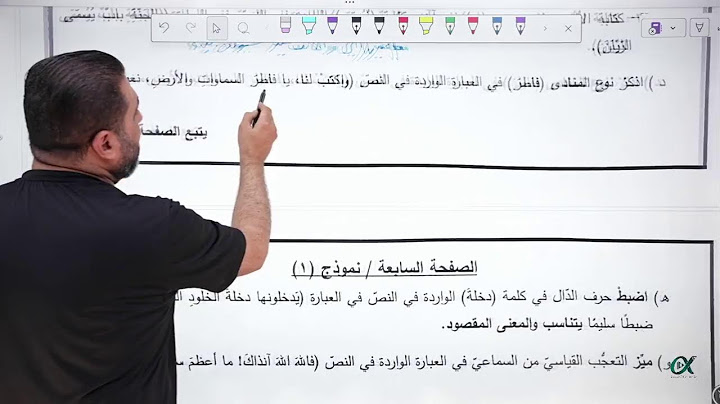 كتابة
الرَّيّان).
د) اذكر نوع المنادى (فاطر) في العبارة الواردة في النصّ (واكتبْ لنا، يا فاطرَ السماواتِ والأرضِ،
يتبع الصفحة
الصفحة السابعة / نموذج (١)
هـ) اضبطْ حرف الدّال في كلمة (دخلة) الواردة في النصّ في العبارة (يَدخلونها دخلةَ الخلودِ
ضبطًا سليمًا يتناسب والمعنى المقصود.
و) ميّز التعجُّب القياسيّ من السماعيّ في العبارة الواردة في النصّ (فاللهَ اللهَ آنذاكَ! ما أعظمَ